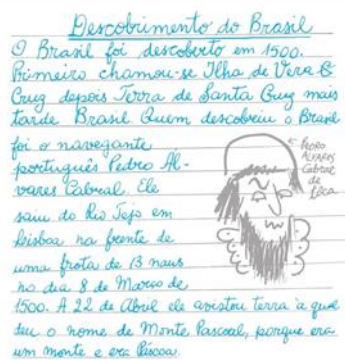 Descobrimento do Brasil
O Brasil foi descoberto em 1500.
Primeiro chamou-se Ilha de Vera
Cruz depois Terra de Santa Cruz mais
tarde Brasil. Quem descobriu o Brasil
foi o navegante
português Pedro Ál-
vares Cabral. Ele
saiu do Rio Tejo em
Lisboa na frente de
uma frota de 13 naus
no dia 8 de Março de
1500. A 22 de Abril ele avistou terra à qual
deu o nome de Monte Pascoal, porque era
um monte e era Páscoa.
PEDRO
ÁLVARES
Cabral
de